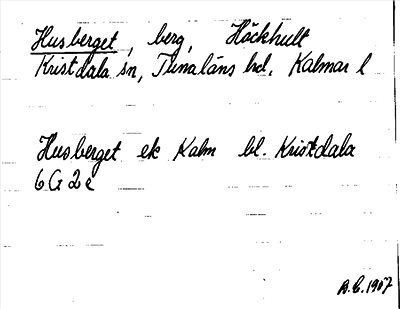 Husberget, berg, Höckhult
Kristdala sn, Tunaläns hd. Kalmar l
Husberget ek Kalm bl. Kristdala
6G2e
B.C. 1967